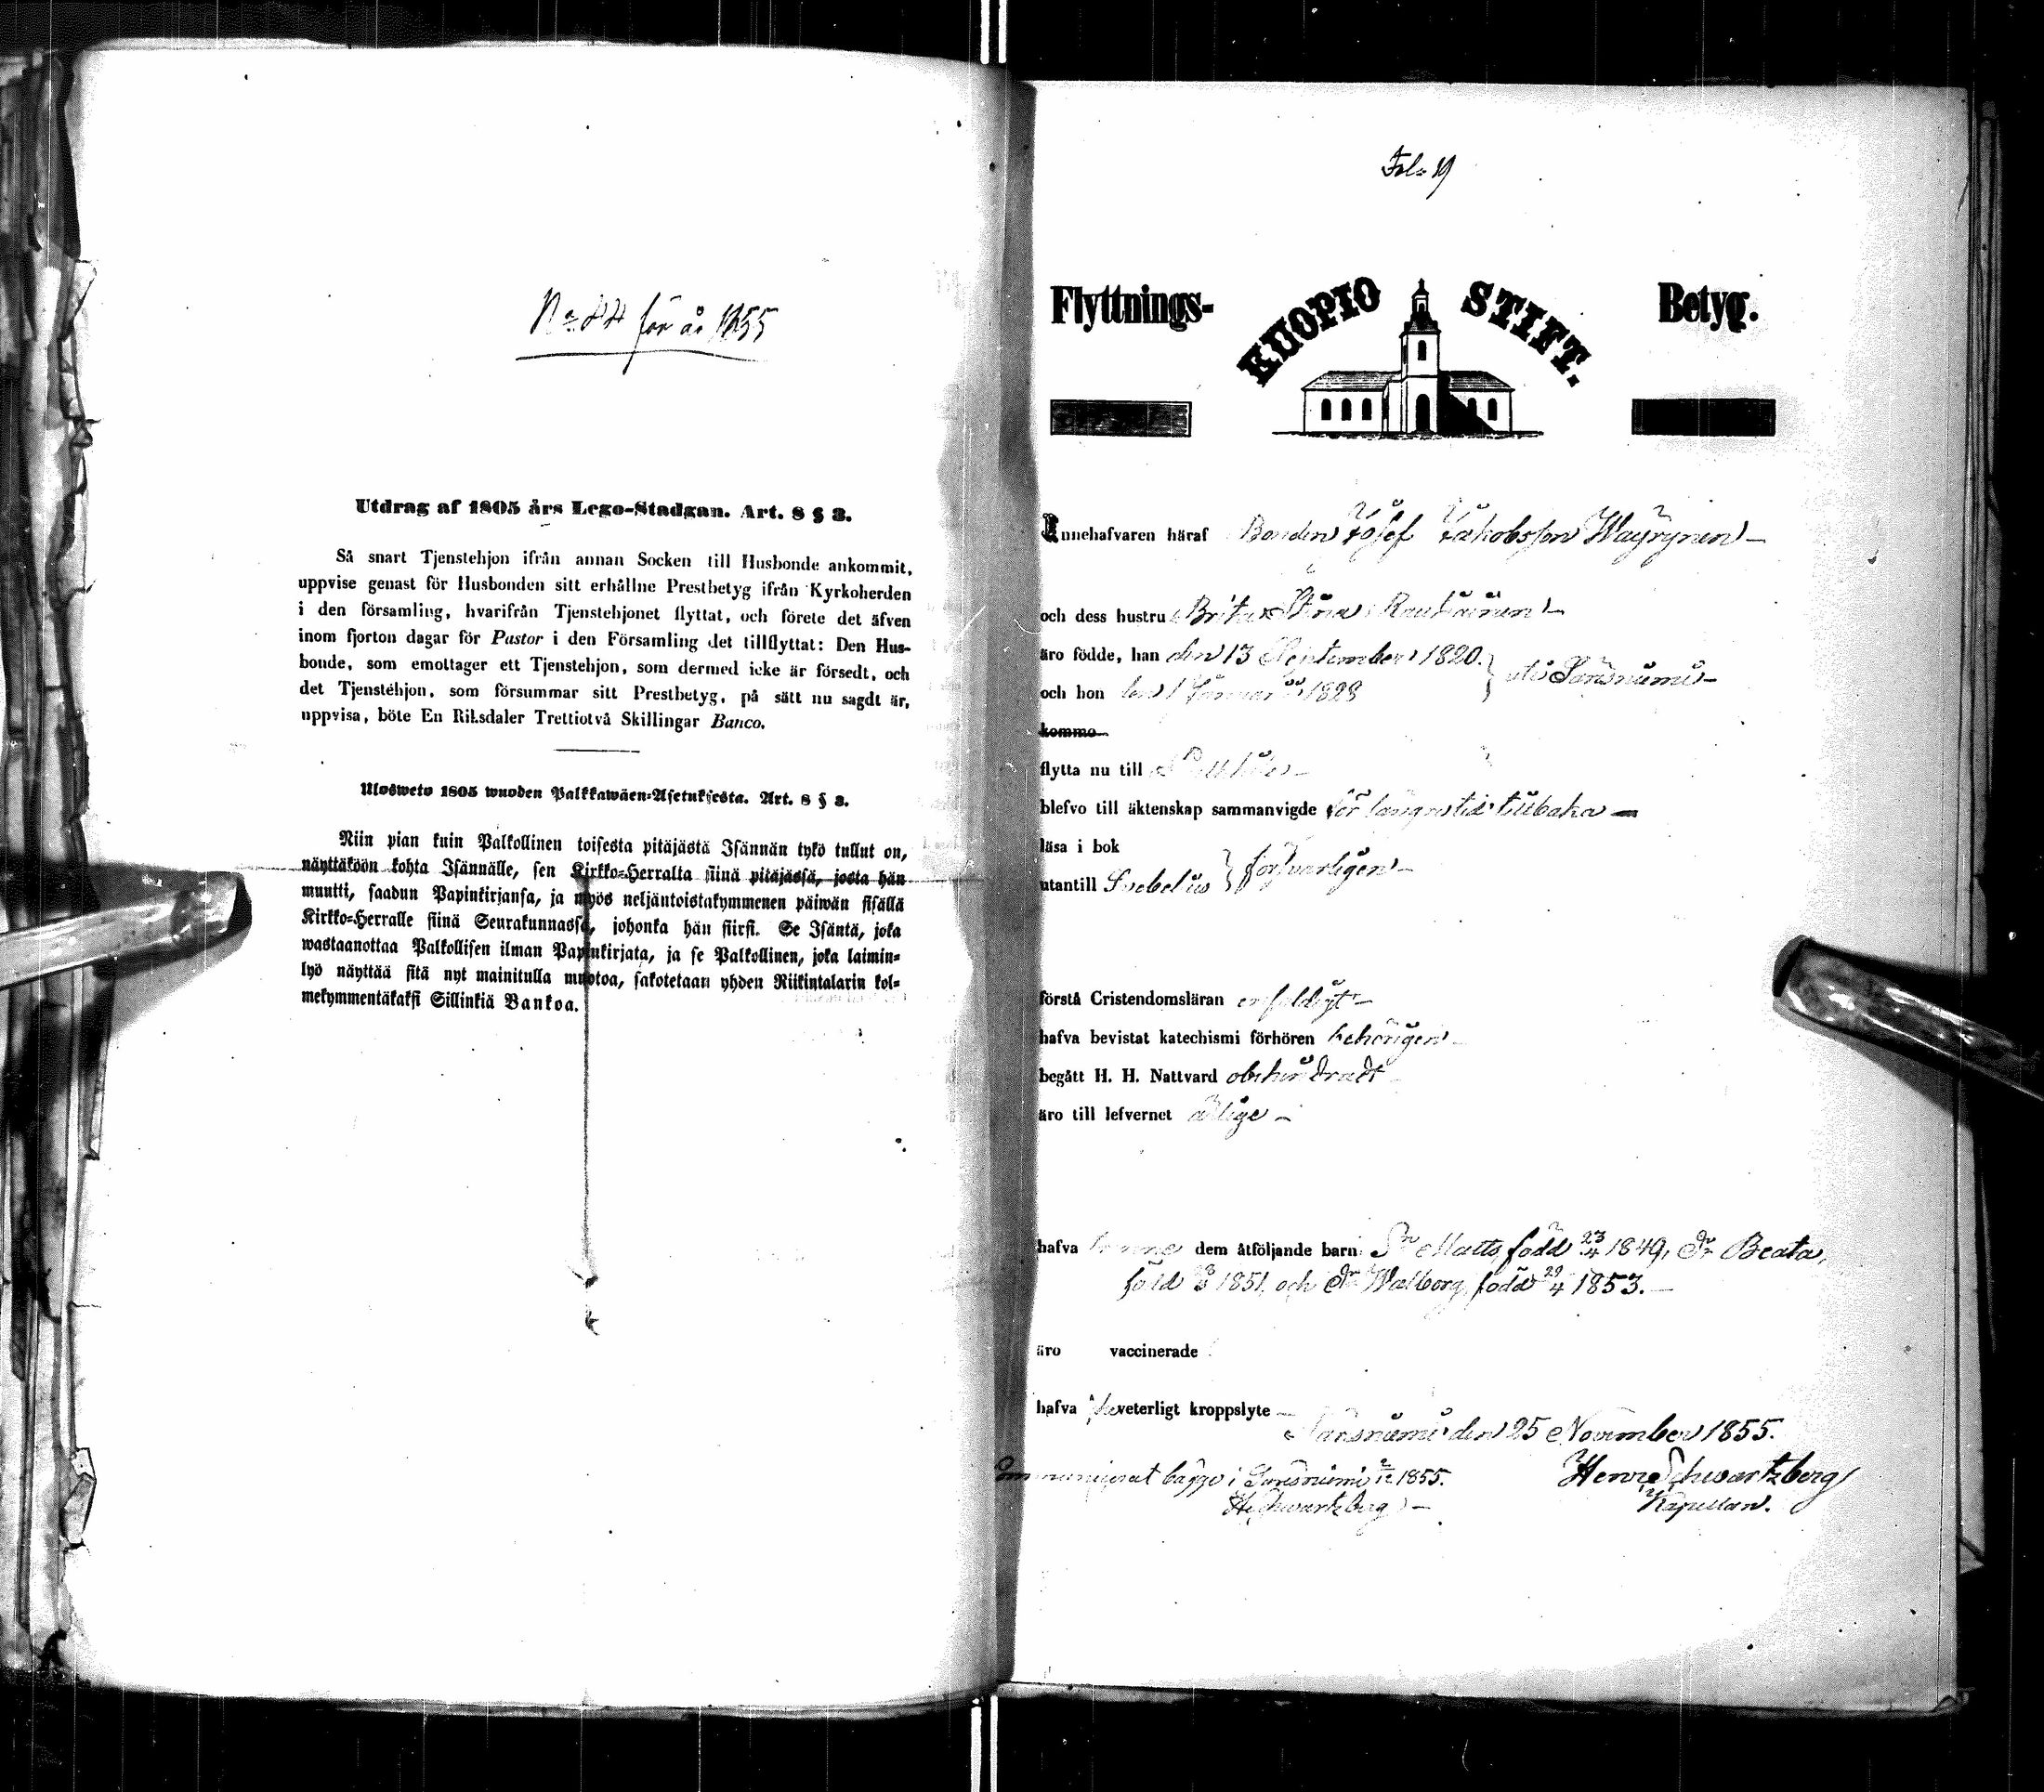 No 84 för år 1855
Utdrag af 1805 års Lego-Stadgan. Art. 8 § 3.
Så snart Tjenstehjon ifrån annan Socken till Husbonde ankommit,
uppvise genast för Husbonden sitt erhållne Prestbetyg ifrån Kyrkoherden
i den församling, hvarifrån Tjenstehjonet flyttat, och förete det äfven
inom fjorton dagar för Pastor i den Församling det tillflyttat: Den Hus-
bonde, som emottager ett Tjenstehjon, som dermed icke är försedt, och
det Tjenstehjon, som försummar sitt Prestbetyg, på sätt nu sagdt är,
uppvisa, böte En Riksdaler Trettiotvå Skillingar Banco.
Ulosweto 1805 wuoden Palkkawäen-Asetuksesta. Art. 8 § 3.
Niin pian kuin Palkollinen toisesta pitäjästä Isännän tykö tullut on,
näyttäköön kohta Isännälle, sen Kirkko-Herralta siinä pitäjässä, josta hän
muutti, saadun Papinkirjansa, ja myös neljäntoistakymmenen päiwän sisällä
Kirkko-Herralle siinä Seurakunnassa, johonka hän siirsi. Se Isäntä, joka
wastaanottaa Palkollisen ilman Papinkirjata, ja se Palkollinen, joka laimin-
lyö näyttää sitä nyt mainitulla muotoa, sakotetaan yhden Riikintalarin kol-
mekymmentäkaksi Sillinkiä Bankoa.
Fol. 19
Flyttnings- KUOPIO STIFT. Betyg.
Innehafvaren häraf Bonden Josef Jakobsson Wäyrynen
och dess hustru Brita Stina Rautiainen
äro födde, han den 13 September 1820.
och hon den 1 Januarii 1828
uti Sarsnumi
kommo
flytta nu till
blefvo till äktenskap sammanvigde för längre tid tillbaka
läsa i bok
utantill Svebelius försvarligen
förstå Cristendomsläran enfaldigt
hafva bevistat katechismi förhören behörigen
begått H. H. Nattvard obehindradt
äro till lefvernet ärlige
hafva dem åtföljande barn Sn Matts född 23/4 1849, Dr Beata,
född 1851, och Dr Walborg född 29/4 1853.
äro vaccinerade
hafva veterligt kroppslyte
Sarsnumi den 25 November 1855.
Henr Schwartzberg
Kapellan.
Communicerat bägge i Sarsnumi 2/12 1855.
H Schwartzberg